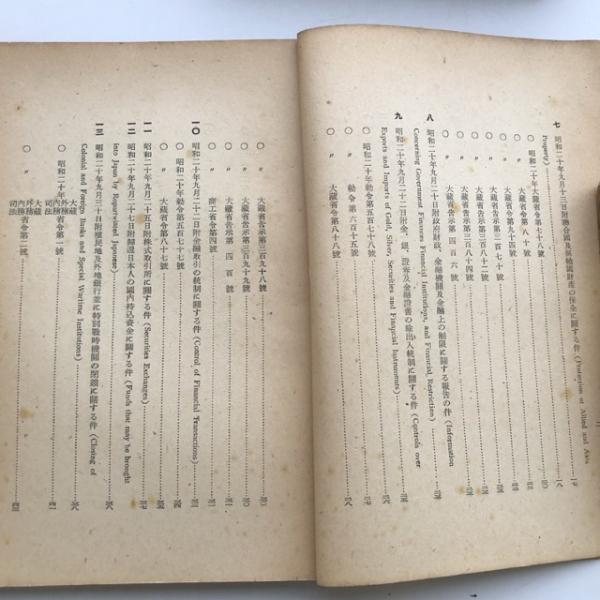 七 昭和二十年九月十三日附聯合國及樞軸國財産の保全に關する件 (Protection of Allied and Axis
Property)
〇 昭和二十年大藏省令第七十八號
〇 〃 大藏省令第八十號
〇 〃 大藏省令第九十四號
〇 〃 大藏省告示第三百七十號
〇 〃 大藏省告示第三百八十二號
〇 〃 大藏省告示第三百八十四號
〇 〃 大藏省告示第四百六號
八 昭和二十年九月二十日附政府財政、金融機關及金融上の制限に關する報告の件 (Information
Concerning Government Finances Financial Institutions, and Financial Restriction)
九 昭和二十年九月二十二日附金、銀、證券及金融證書の輸出入統制に關する件 (Controls over
Exports and Imports of Gold, Silver, Securities and Financial Instruments)
〇 昭和二十年勅令第五百七十八號
〇 〃 勅令第六百十五號
〇 〃 大藏省令第八十八號
〇 〃 大藏省告示第三百九十八號
〇 〃 大藏省告示第三百九十九號
〇 〃 大藏省告示第四百號
〇 〃 商工省令第四號
一〇 昭和二十年九月二十二日附金融取引の統制に關する件 (Control of Financial Transactions)
〇 昭和二十年勅令第五百七十七號
〇 〃 大藏省令第八十七號
一一 昭和二十年九月二十五日附株式取引所に關する件 (Securities Exchanges)
一二 昭和二十年九月二十七日附歸還日本人の國內持込資金に關する件 (Funds that may be brought
into Japan by Repatriated Japanese)
一三 昭和二十年九月三十日附植民地及外地銀行並に特別戰時機關の閉鎖に關する件 (Closing of
Colonial and Foreign Banks and Special Wartime Institutions)
〇 昭和二十年大藏外務內務司法省令第一號
〇 〃 大藏外務內務司法省令第二號